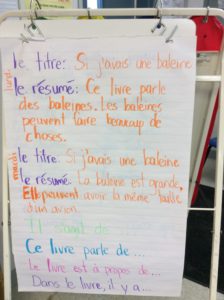 le titre: Si j'avais une baleine
lundi
le résumé: Ce livre parle
des baleines. Les baleines
peuvent faire beaucoup de
choses.
le titre: Si j'avais une baleine
mardi
le résumé: La baleine est grande.
Elle peuvent avoir la même taille
d'un avion.
Il s'agit de
Ce livre parle de...
Le livre est à propos de...
Dans le livre, il y a...